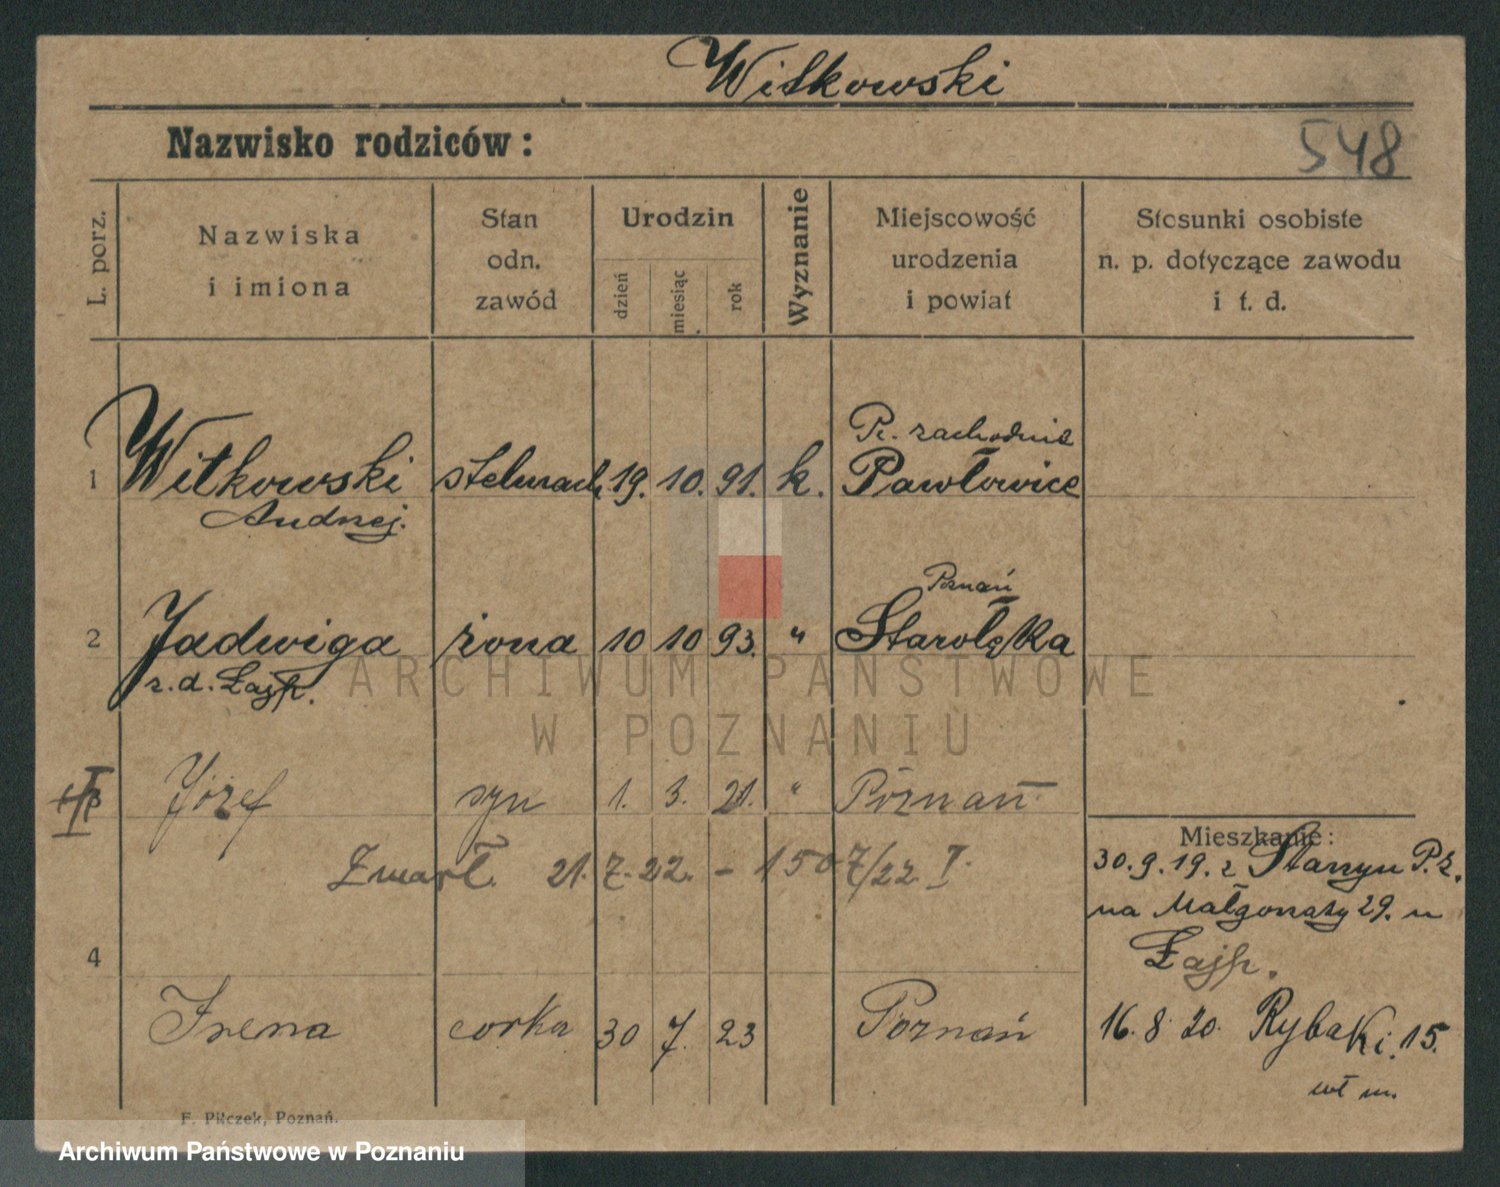 Witkowski
Nazwisko rodziców:
548
L. porz.
Nazwiska
i imiona
Stan
odn.
zawód
Urodzin
dzień
miesiąc
rok
Wyznanie
Miejscowość
urodzenia
i powiat
Stosunki osobiste
n. p. dotyczące zawodu
i t. d.
P. zachodnie
1 Witkowski stelmach 19. 10. 91. k. Pawłowice
Andrzej.
Poznań
2 Jadwiga żona 10 10 93. " Starołęka
z. d. Łajp.
Józef syn 1. 3. 21. " Poznań
Zmarł. 21. 7. 22. - 1507/22 I.
Mieszkanie:
30. 9. 19. z P. z.
na Małgorzaty 29. u
Łajp.
4
Irena corka 30 7. 23 Poznań
16. 8. 20. Rybaki. 15.
wł m.
F. Pilczek, Poznań.
ARCHIWUM PAŃSTWOWE
W POZNANIU
Archiwum Państwowe w Poznaniu